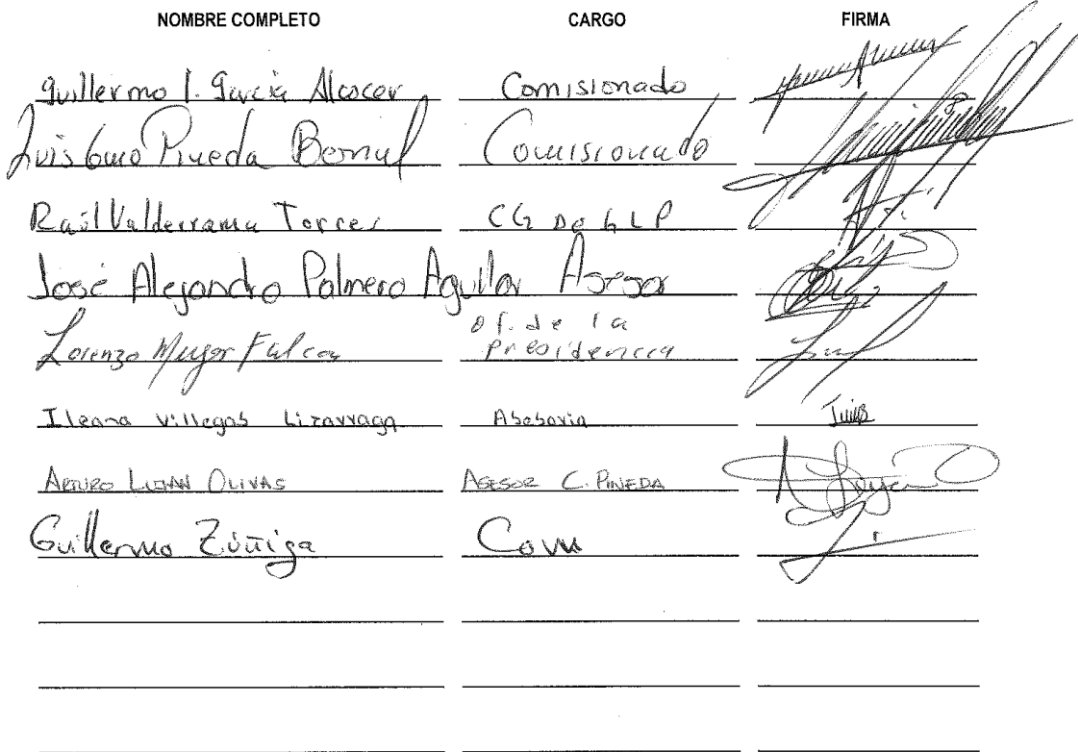 NOMBRE COMPLETO CARGO FIRMA
Guillermo I. García Alcocer Comisionado
Luis Gmo Pineda Bernal Comisionado
Raúl Valderrama Torres CG De GLP
José Alejandro Palmero Aguilar Asesor
Lorenzo Meyer Falcon Of. de la presidencia
Ileana Villegas Lizarraga Asesoria
ARTURO LUJAN OLIVAS ASESOR C. PINEDA
Guillermo Zúñiga Com